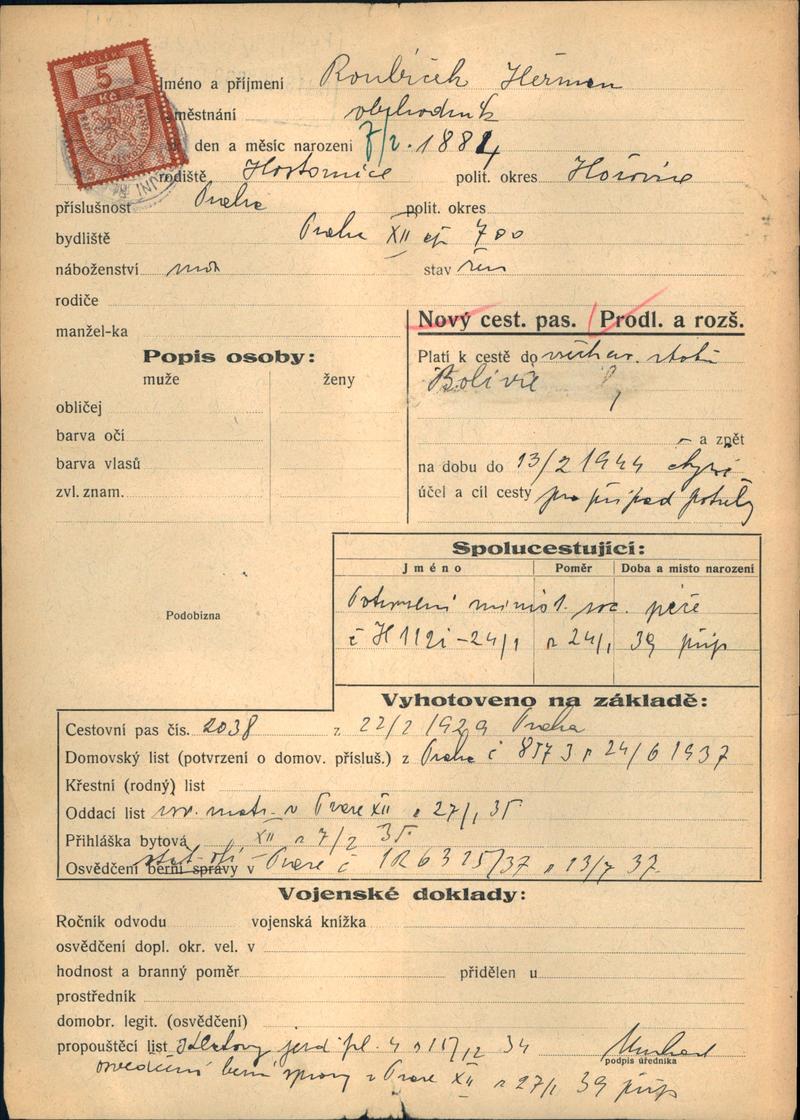 KOLEK
5
Kč
Jméno a příjmení Roubíček Heřman
městnání obchodník
den a měsíc narození 7/2. 1884
rodiště Hostomice polit. okres Hořovice
příslušnost Praha polit. okres
bydliště Praha XII čp 700
náboženství stav žen
rodiče
manžel-ka
Nový cest. pas. Prodl. a rozš.
Popis osoby:
muže ženy
obličej
barva očí
barva vlasů
zvl. znam.
Platí k cestě do států
Bolivie
a zpět
na dobu do 13/2 1944
účel a cíl cesty pro případ potřeby
Podobizna
Spolucestující:
Jméno Poměr Doba a místo narození
Potvrzení minist. soc. péče
č H 112i-24/1 z 24/1 39 přip
Vyhotoveno na základě:
Cestovní pas čís. 2038 z 22/2 1929 Praha
Domovský list (potvrzení o domov. přísluš.) z Praha č 8573 z 24/6 1937
Křestní (rodný) list
Oddací list v Praze XII z 27/1 35
Přihláška bytová XII z 7/2 35
Osvědčení berní správy v Praze č 126325/37 z 13/7 37
Vojenské doklady:
Ročník odvodu vojenská knížka
osvědčení dopl. okr. vel. v
hodnost a branný poměr přidělen u
prostředník
domobr. legit. (osvědčení)
propouštěcí list pl. 4 z 12 34
podpis úředníka
osvědčení berní správy v Praze XII z 27/1 39 přip